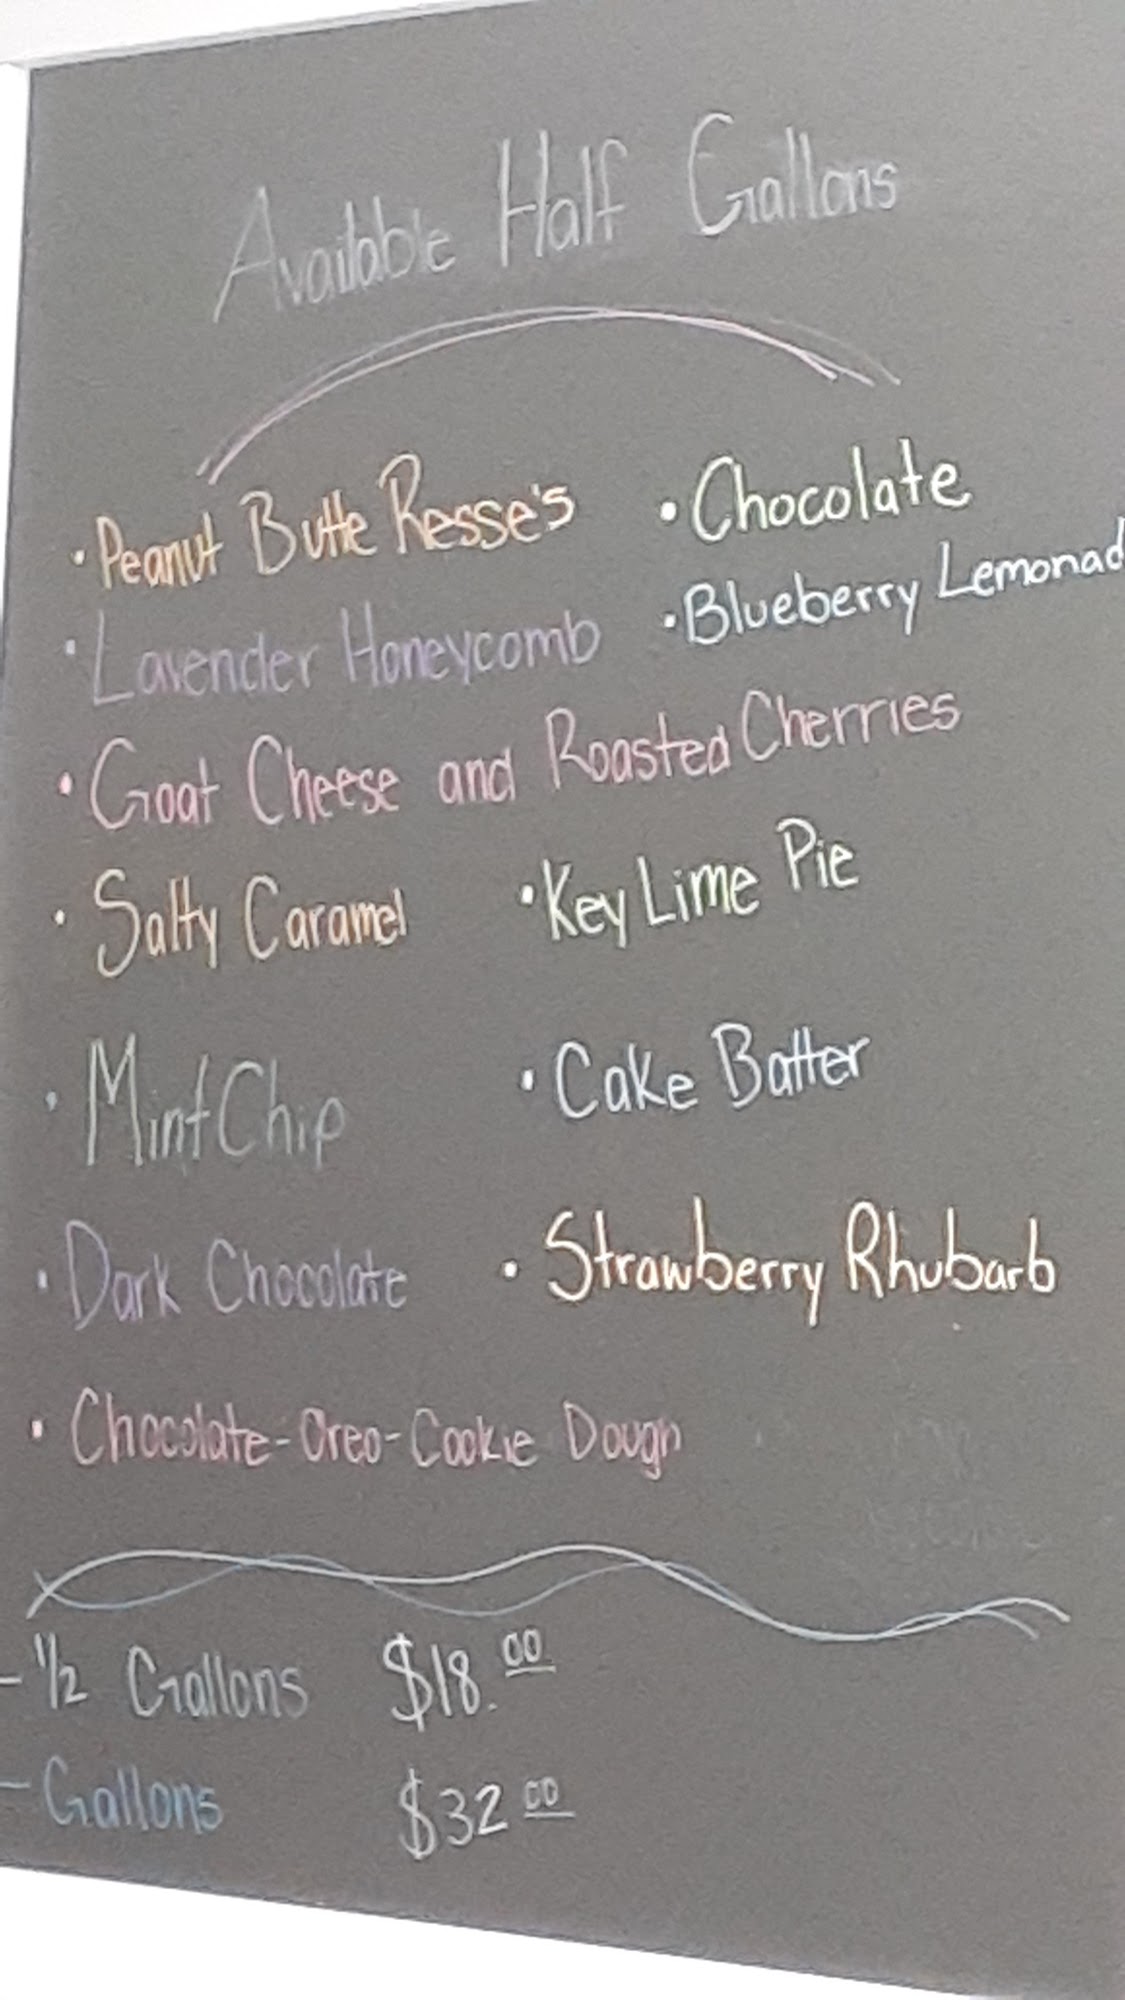 Available Half Gallons
• Peanut Butte Resse's
• Chocolate
• Lavender Honeycomb
• Blueberry Lemonad
• Goat Cheese and Roasted Cherries
• Salty Caramel
• Key Lime Pie
• Mint Chip
• Cake Batter
• Dark Chocolate
• Strawberry Rhubarb
• Chocolate-Oreo-Cookie Dough
- 1/2 Gallons $18.00
- Gallons $32 00